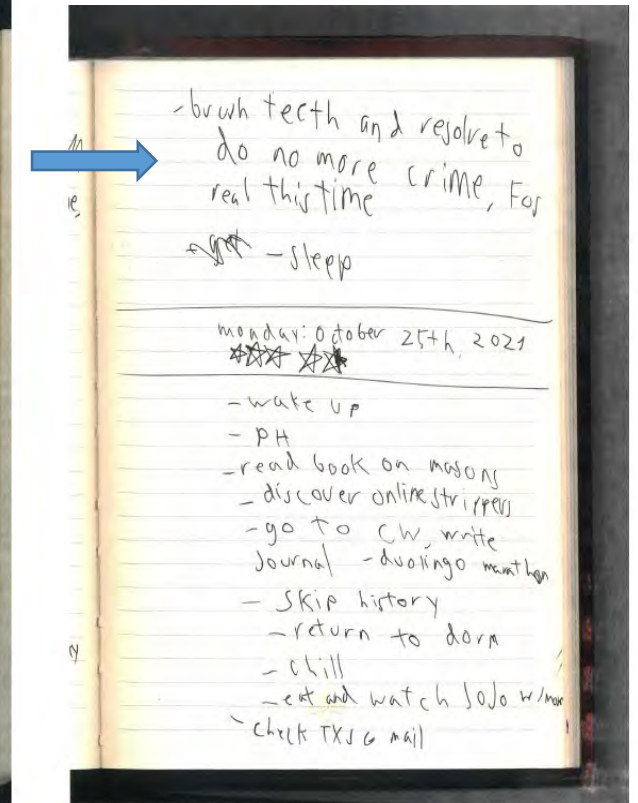 - bruwh teeth and resolve to
do no more crime, For
real this time
- sleep
monday: October 25th, 2021
- wake up
- PH
- read book on masons
- discover online strippers
- go to CW, write
Journal - duolingo marathon
- Skip history
- return to dorm
- chill
- eat and watch JoJo w/
- Check TXJ G mail